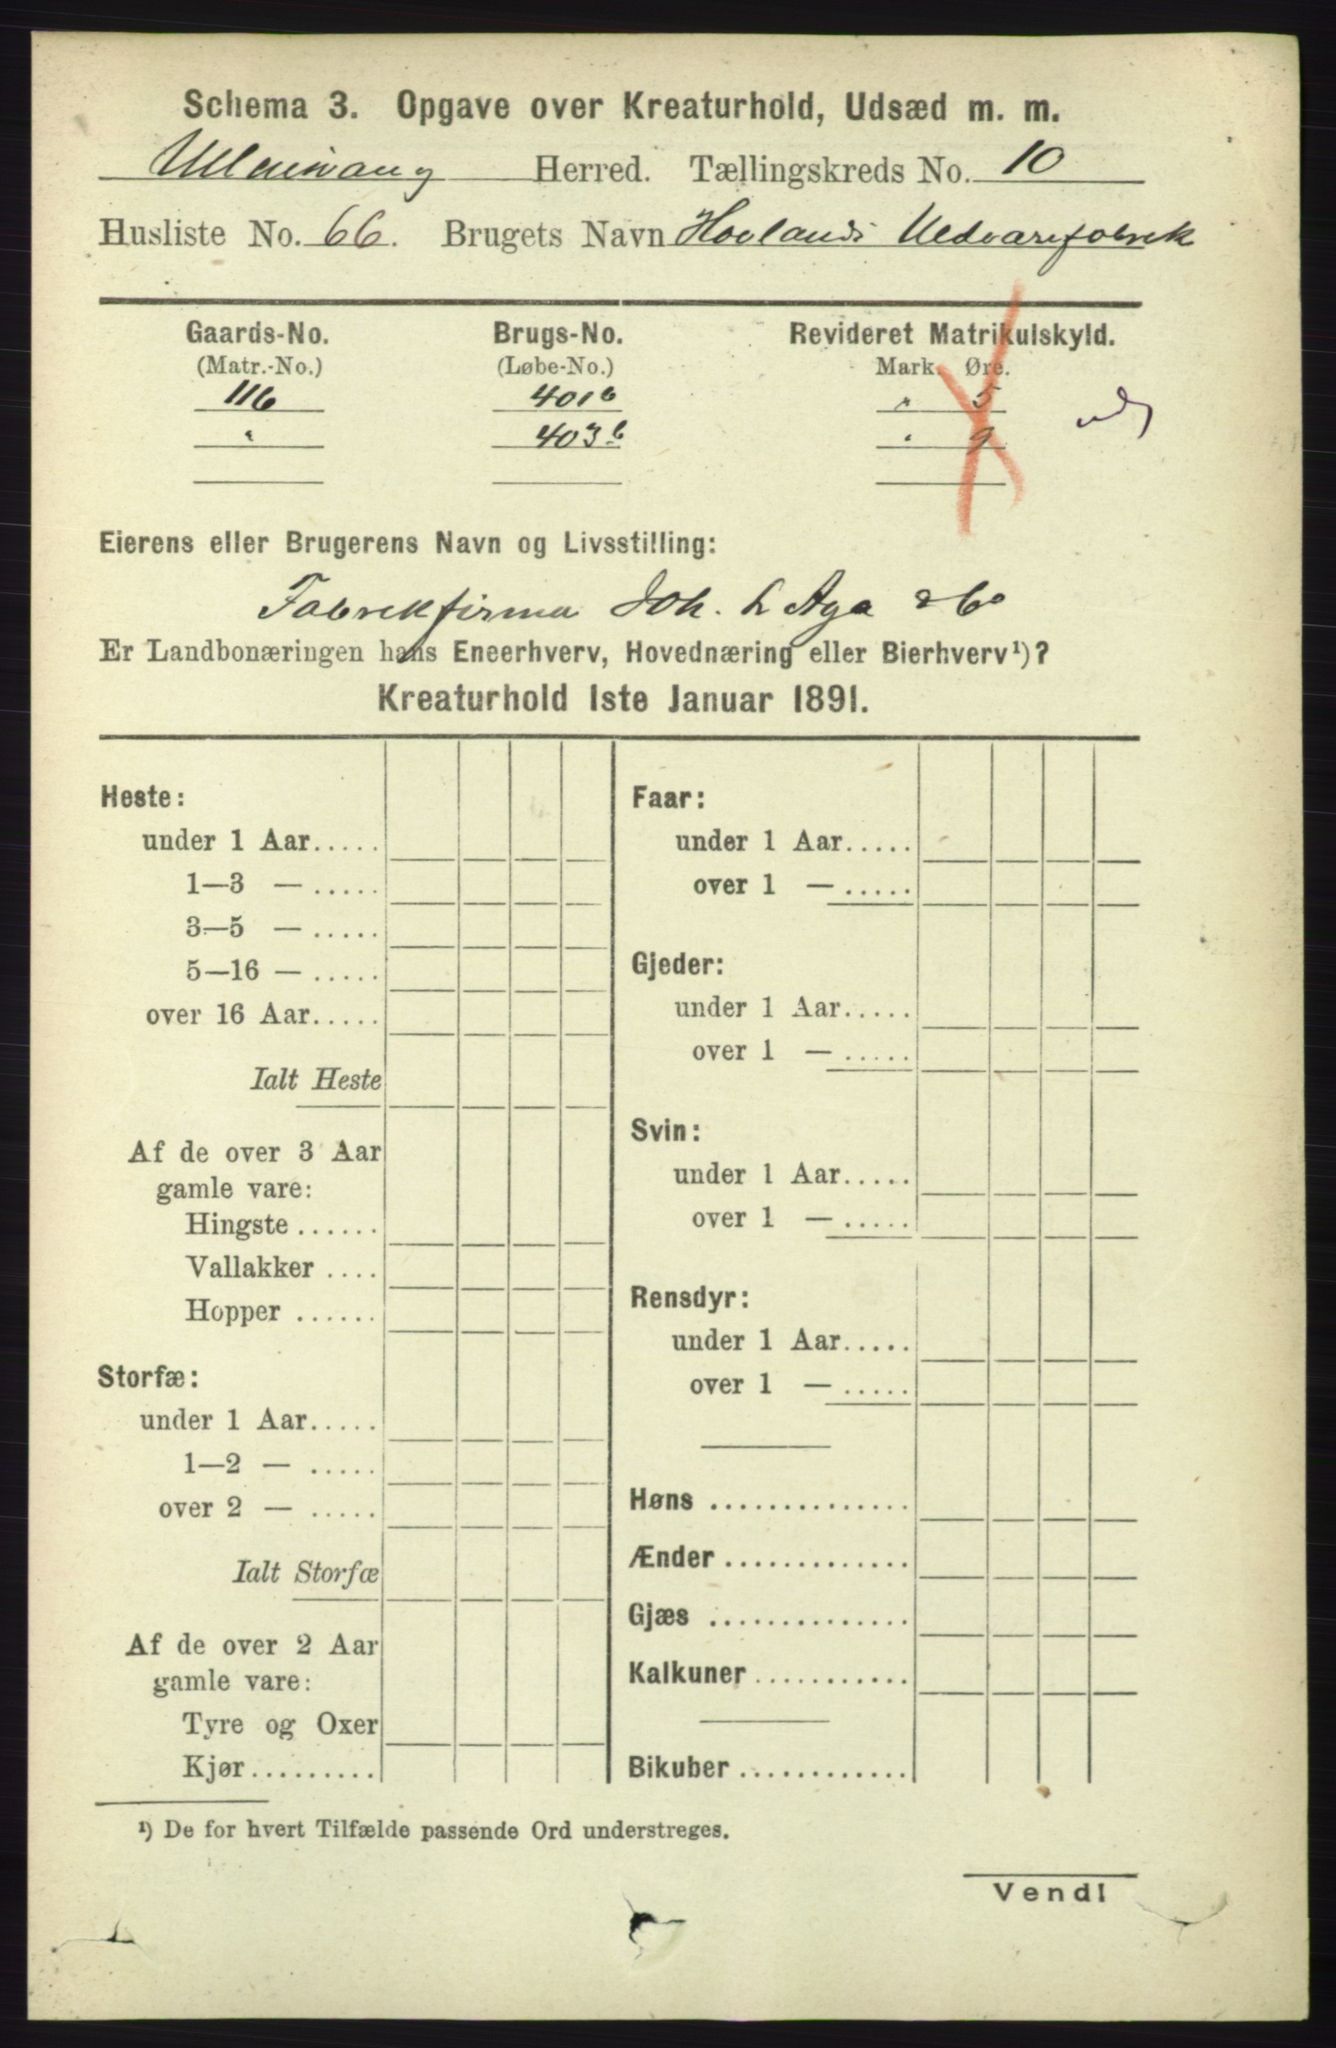 Schema 3. Opgave over Kreaturhold, Udsæd m. m.
Ullensvang Herred. Tællingskreds No. 10
Husliste No. 66. Brugets Navn Hovlands Uldvarefabrik
Gaards-No. Brugs-No. Revideret Matrikulskyld.
(Matr.-No.) (Løbe-No.) Mark. Øre.
116 401 b " 5
" 403 b " 9
Eierens eller Brugerens Navn og Livsstilling:
Fabrikfirma Joh. L Aga & Co
Er Landbonæringen hans Eneerhverv, Hovednæring eller Bierhverv¹)?
Kreaturhold 1ste Januar 1891.
Heste:
under 1 Aar.....
1—3 — .....
3—5 — .....
5—16 — .....
over 16 Aar.....
Ialt Heste
Af de over 3 Aar
gamle vare:
Hingste ......
Vallakker ....
Hopper ......
Storfæ:
under 1 Aar.....
1—2 — .....
over 2 — .....
Ialt Storfæ
Af de over 2 Aar
gamle vare:
Tyre og Oxer
Kjør.........
Faar:
under 1 Aar.....
over 1 — .....
Gjeder:
under 1 Aar.....
over 1 — .....
Svin:
under 1 Aar.....
over 1 — .....
Rensdyr:
under 1 Aar.....
over 1 — .....
Høns ..............
Ænder .............
Gjæs ..............
Kalkuner ...........
Bikuber ............
¹) De for hvert Tilfælde passende Ord understreges.
Vend!